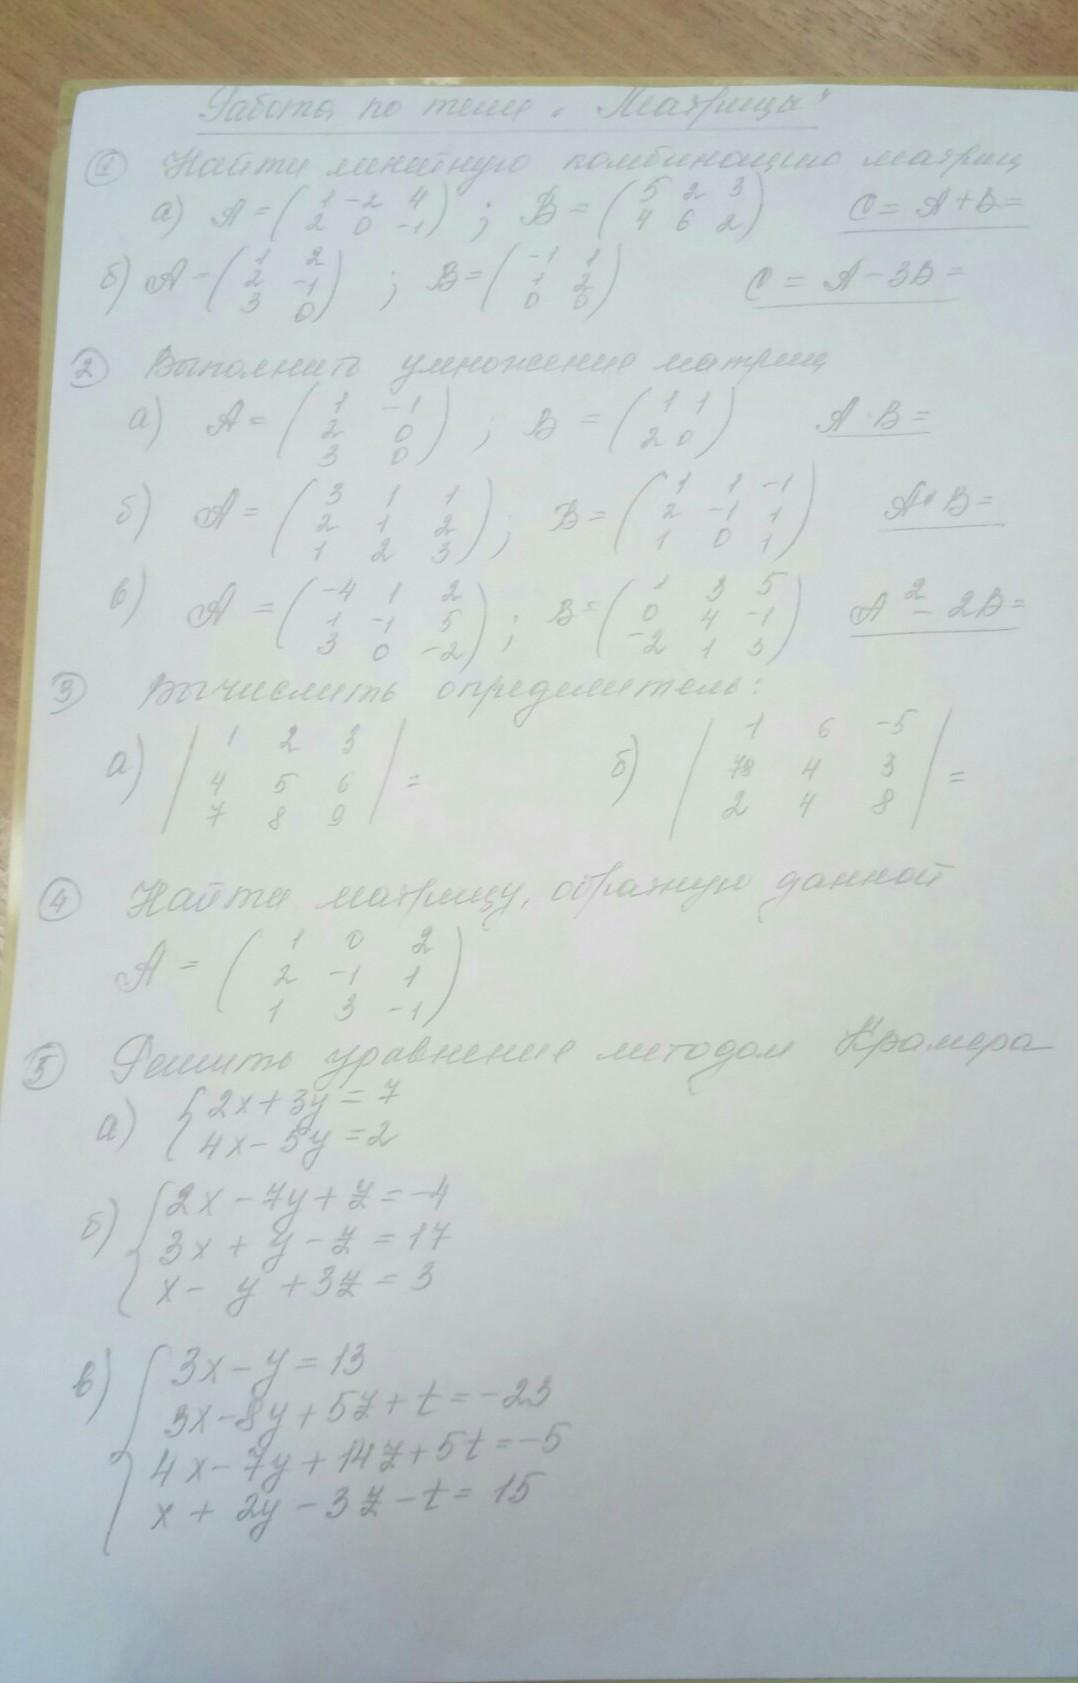 Работа по теме „Матрицы"
① Найти линейную комбинацию матриц
а) A = ( 1 -2 4 ; 2 0 -1 ) ; B = ( 5 2 3 ; 4 6 2 ) C = A+B=
б) A = ( 1 2 ; 2 -1 ; 3 0 ) ; B = ( -1 1 ; 1 2 ; 0 0 ) C = A-3B=
② Выполнить умножение матриц
а) A = ( 1 -1 ; 2 0 ; 3 0 ) ; B = ( 1 1 ; 2 0 ) A·B=
б) A = ( 3 1 1 ; 2 1 2 ; 1 2 3 ) ; B = ( 1 1 -1 ; 2 -1 1 ; 1 0 1 ) A·B=
в) A = ( -4 1 2 ; 1 -1 5 ; 3 0 -2 ) ; B = ( 1 3 5 ; 0 4 -1 ; -2 1 3 ) A² - 2B=
③ Вычислить определитель:
а) | 1 2 3 ; 4 5 6 ; 7 8 9 | = б) | 1 6 -5 ; 78 4 3 ; 2 4 8 | =
④ Найти матрицу, обратную данной
A = ( 1 0 2 ; 2 -1 1 ; 1 3 -1 )
⑤ Решить уравнение методом Крамера
а) { 2x+3y=7
4x-5y=2
б) { 2x-7y+z=-4
3x+y-z=17
x-y+3z=3
в) { 3x-y=13
3x-8y+5z+t=-23
4x-7y+14z+5t=-5
x+2y-3z-t=15